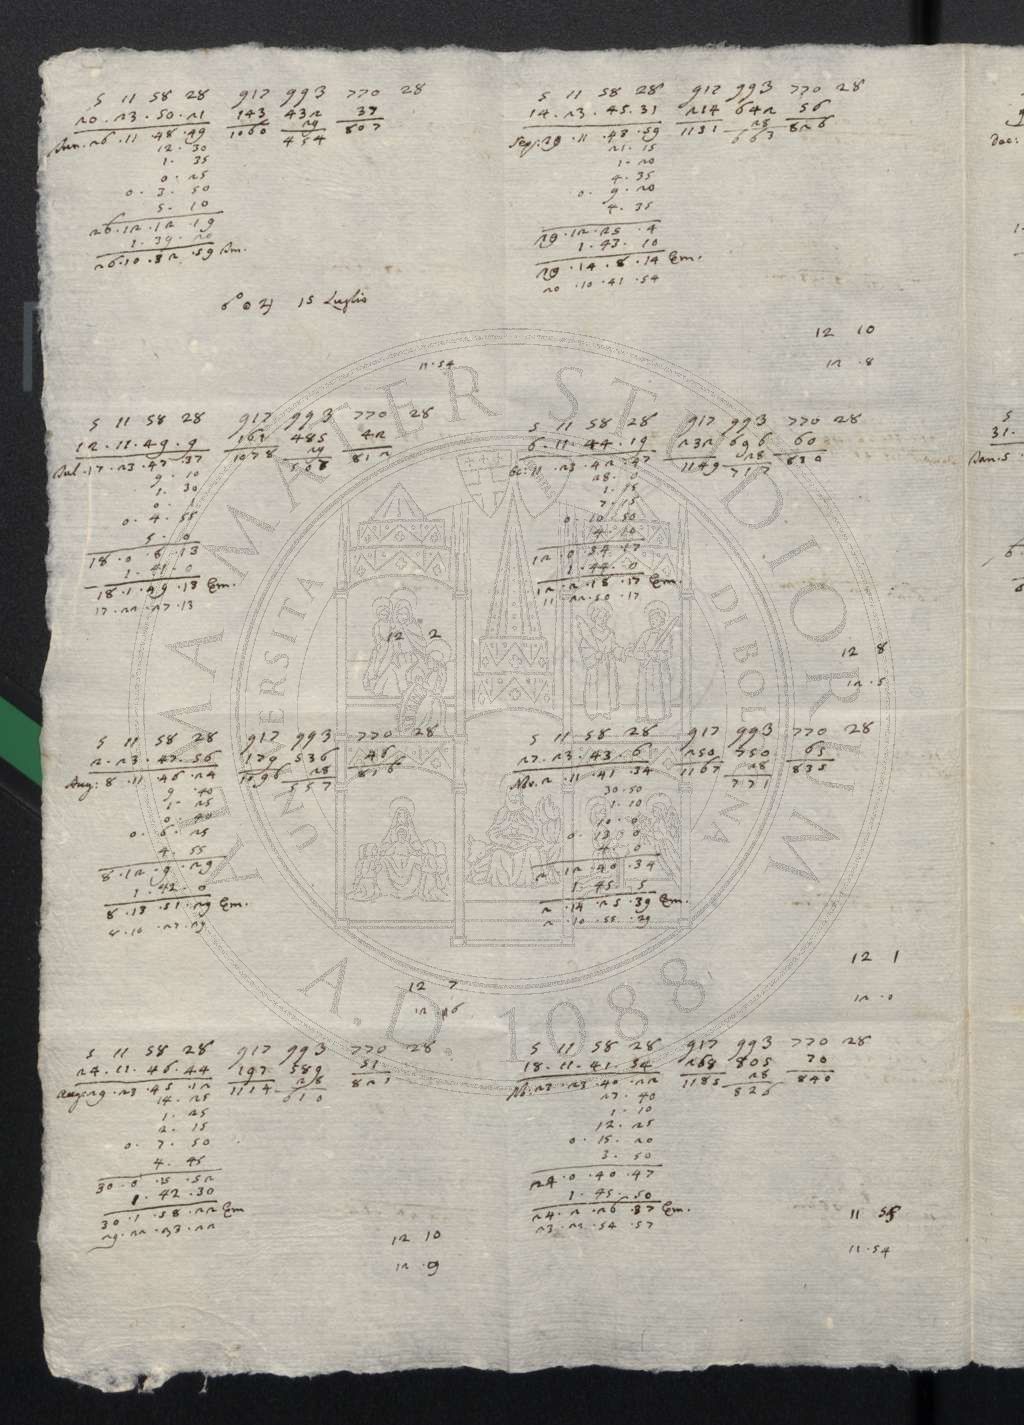 5 11 58 28 917 993 770 28
20 . 23 . 50 . 21 143 432 37
Iun. 26 . 11 . 48 . 49 1060 29 807
12 . 30 454
1 . 35
0 . 25
0 . 3 . 50
5 . 10
26 . 12 . 12 . 19
1 . 39 . 20
26 . 10 . 32 . 59 Im.
6° ☉ ♃ 15 Luglio
11 . 54
5 11 58 28 917 993 770 28
12 . 11 . 49 . 9 161 485 42
Iul. 17 . 23 . 47 . 37 1078 29 812
9 . 10 508
1 . 30
0 . 1
0 . 4 . 55
5 . 0
18 . 0 . 8 . 13
1 . 41 . 0
18 . 1 . 49 . 13 Em.
17 . 22 . 27 . 13
12 2
5 11 58 28 917 993 770 28
2 . 23 . 47 . 56 179 536 46
Aug: 8 . 11 . 46 . 24 1096 28 816
9 . 40 557
1 . 25
0 . 40
0 . 6 . 25
4 . 55
8 . 12 . 9 . 29
1 . 42 . 0
8 . 13 . 51 . 29 Em.
8 . 10 . 27 . 29
12 7
12 . 26
5 11 58 28 917 993 770 28
24 . 11 . 46 . 44 197 589 51
Aug: 29 . 23 . 45 . 12 1114 28 821
14 . 25 610
1 . 25
2 . 15
0 . 7 . 50
4 . 45
30 . 0 . 15 . 52
1 . 42 . 30
30 . 1 . 58 . 22 Em
29 . 22 . 23 . 22
12 10
12 . 9
5 11 58 28 917 993 770 28
14 . 23 . 45 . 31 214 642 56
Sep: 29 . 11 . 43 . 59 1131 28 826
21 . 15 663
1 . 20
4 . 35
0 . 9 . 20
4 . 35
29 . 12 . 25 . 4
1 . 43 . 10
29 . 14 . 8 . 14 Em.
20 . 10 . 41 . 54
12 10
12 . 8
5 11 58 28 917 993 770 28
6 . 11 . 44 . 19 232 696 60
11 . 23 . 42 . 47 1149 28 830
28 . 0 717
1 . 15
7 . 15
0 . 10 . 50
4 . 10
12 . 0 . 34 . 17
1 . 44 . 0
12 . 2 . 18 . 17 Em.
11 . 22 . 50 . 17
12 8
12 . 5
5 11 58 28 917 993 770 28
27 . 23 . 43 . 6 250 750 65
Nov. 2 . 11 . 41 . 34 1167 28 835
30 . 50 771
1 . 10
10 . 0
0 . 13 . 0
4 . 0
2 . 12 . 40 . 34
1 . 45 . 5
2 . 14 . 25 . 39 Em.
2 . 10 . 55 . 39
12 1
12 . 0
5 11 58 28 917 993 770 28
18 . 11 . 41 . 54 268 805 70
No. 23 . 23 . 40 . 22 1185 28 840
27 . 40 826
1 . 10
12 . 25
0 . 15 . 20
3 . 50
24 . 0 . 40 . 47
1 . 45 . 50
24 . 2 . 26 . 37 Em.
23 . 22 . 54 . 57
11 58
11 . 54
Dec:
5
31 .
Ian. 5 .
ALMA MATER STUDIORUM
UNIVERSITA DI BOLOGNA
A.D. 1088